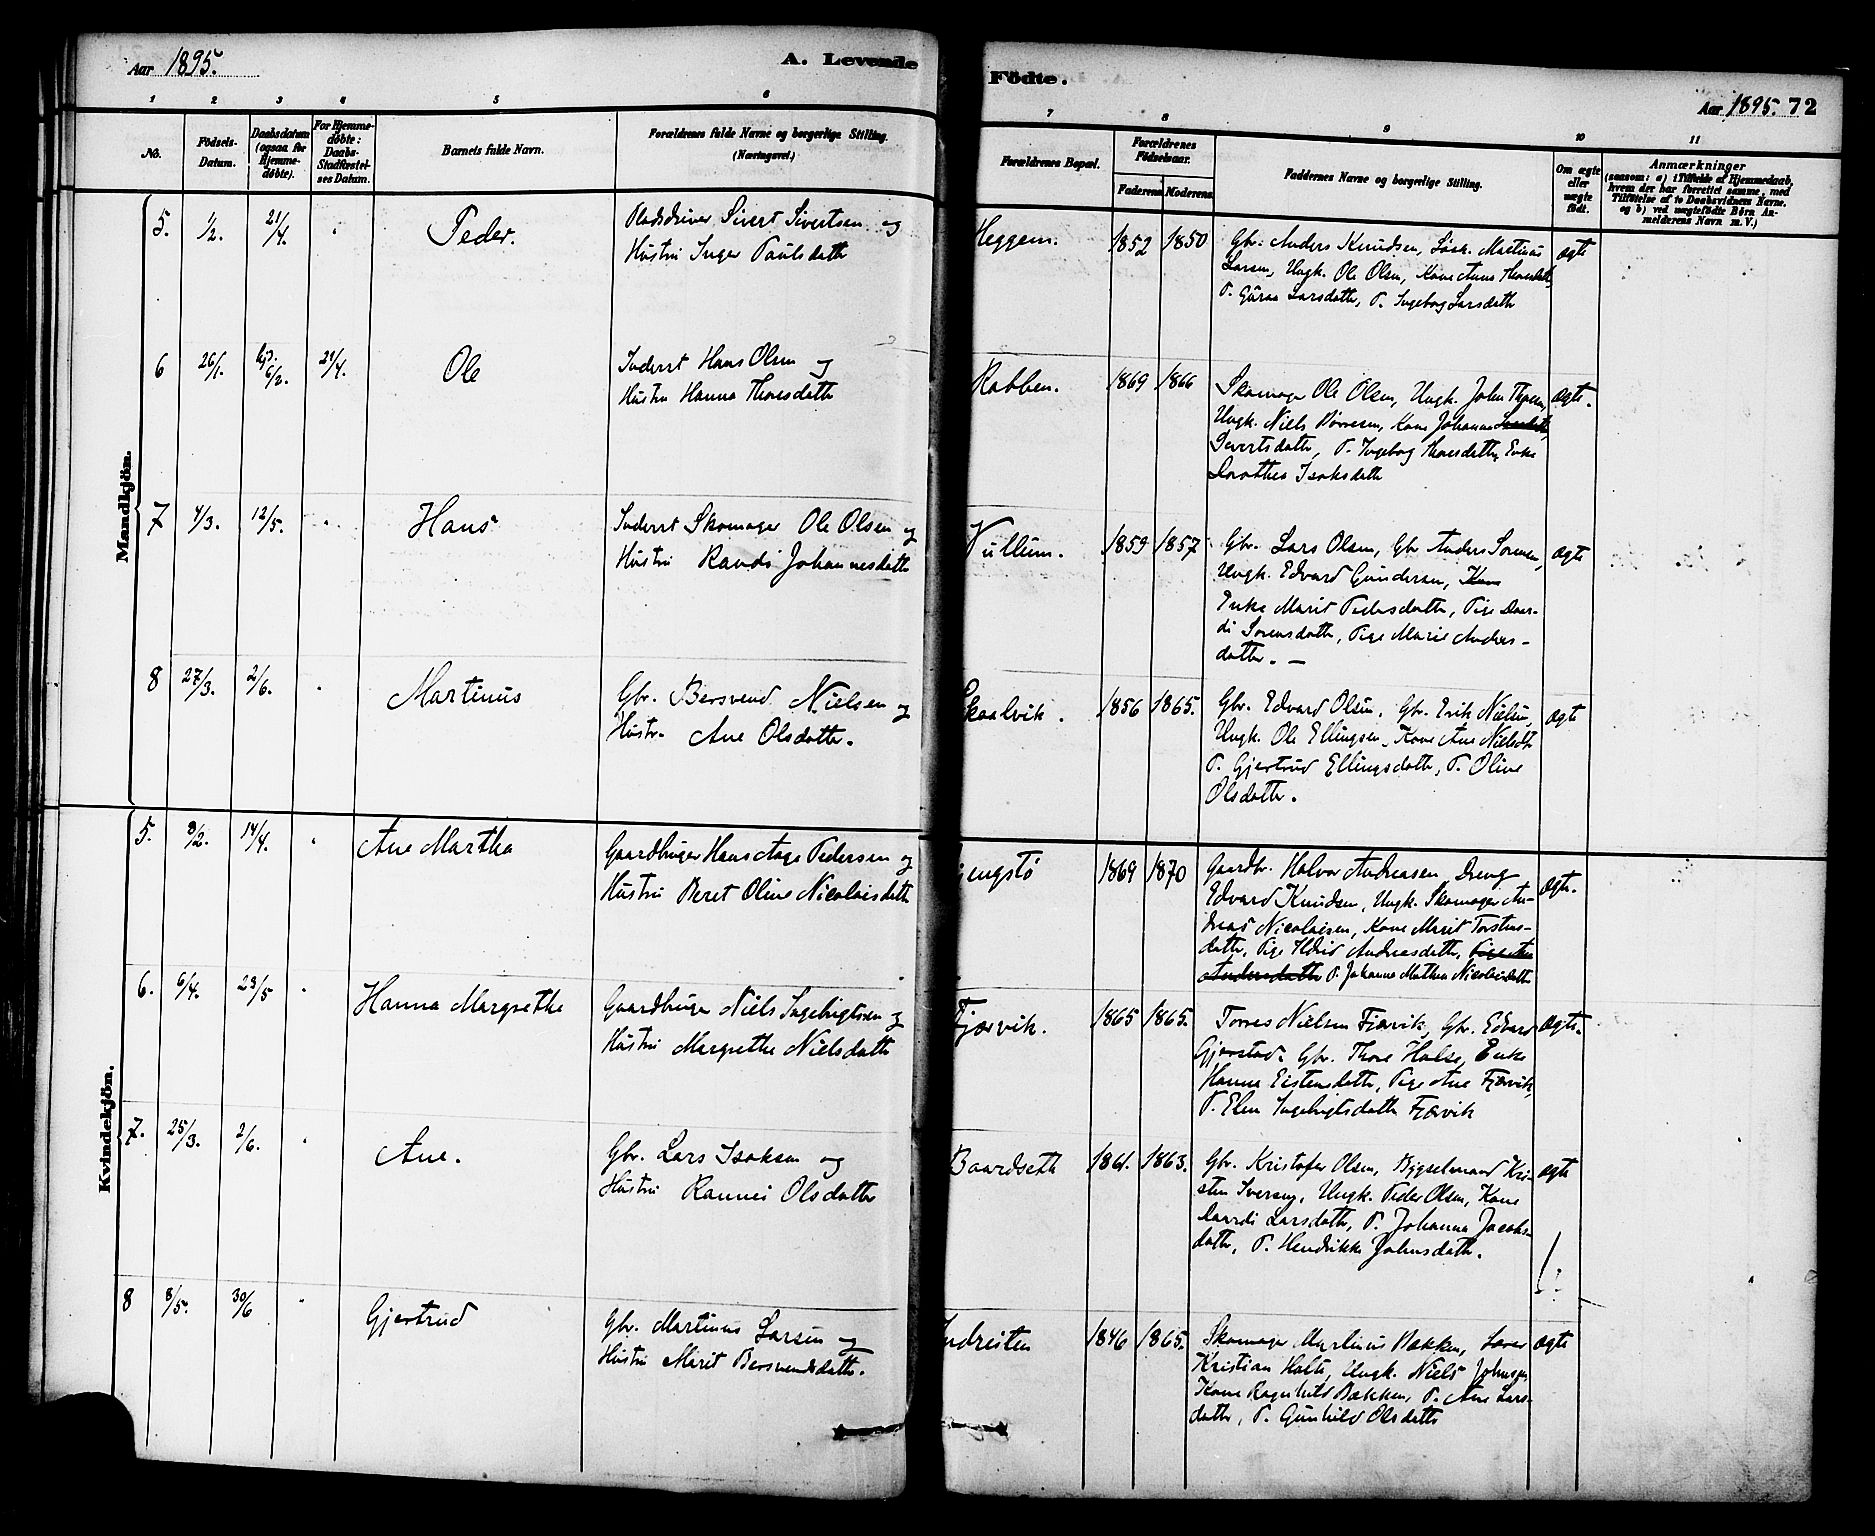 Aar 1895.
A. Levende
1 2 3 4 5 6
No.
Födsels-
Datum.
Daabsdatum
(ogsaa for
Hjemme-
døbte).
For Hjemme-
døbte:
Daabs-
Stadfæstel-
ses Datum.
Barnets fulde Navn.
Forældrenes fulde Navne og borgerlige Stilling.
(Næringsvei.)
Mandkjön.
5. 1/2. 21/4. " Peder.
Pladsdriver Sivert Sivertsen og
Hustru Inger Paulsdatter
6 26/1. hjd. 6/2. 21/4. Ole
Inderst Hans Olsen og
Hustru Hanna Thoresdatter
7 4/3. 12/5. " Hans
Inderst Skomager Ole Olsen og
Hustru Randi Johannesdatter
8 27/3. 2/6. " Martinus
Gbr. Bersvend Nielsen og
Hustr. Ane Olsdatter.
Kvindekjön.
5. 8/2. 14/4. " Ane Martha
Gaardbruger Hans Aage Pedersen og
Hustru Beret Oline Nicolaisdatter
6. 6/4. 23/5 " Hanna Margrethe
Gaardbruger Niels Ingebrigtsen og
Hustru Margrethe Nielsdatter
7. 25/3. 2/6. " Ane.
Gbr. Lars Isaksen og
Hustru Rannei Olsdatter
8 8/5. 30/6 " Gjertrud
Gbr. Martinus Larsen og
Hustru Marit Bersvendsdatter.
Födte.
Aar 1895. 72
7 8 9 10 11
Forældrenes Bopæl.
Forældrenes
Födselsaar.
Faderens. Moderens.
Faddernes Navne og borgerlige Stilling.
Om ægte
eller
uægte
födt.
Anmærkninger
(saasom: a) i Tilfælde af Hjemmedaab,
hvem der har forrettet samme, med
Tilföielse af to Daabsvidners Navne,
og b) ved uægtefödte Börn An-
melderens Navn m. V.)
Heggem. 1852 1850
Gbr. Anders Knudsen, Løsk. Martinus
Larsen, Ungk. Ole Olsen, Kone Anne Thoresdatter,
P. Guroe Larsdatter, P. Ingebog Larsdatter
ægte
Rabben. 1869 1866
Skomager Ole Olsen, Ungk. John Thoresen,
Ungk. Niels Børresen, Kone Johanna
Sivertsdatter, P. Ingebog Thoresdatter, Enke
Dorothea Isaksdatter
ægte.
Vullum. 1859 1857
Gbr. Lars Olsen, Gbr Anders Sorensen,
Ungk. Edvard Gundersen, Kone
Enke Marit Pedersdatter, Pige Daar-
di Sorensdatter, Pige Marie Anders-
datter. —
ægte
Skaalvik. 1856 1865.
Gbr. Edvard Olsen, Gbr. Erik Nielsen,
Ungk. Ole Ellingsen, Kone Ane Nielsdtr
P. Gjertrud Ellingsdatter, P. Oline
Olsdatter.
ægte
gengstø 1869 1870
Gaardbr. Halvor Andreasen, Dreng
Edvard Knudsen, Ungk. Skomager An-
dreas Nicolaisen, Kone Marit Torstens-
datter, Pige Ildrid Andreasdatter, Pige Ane
Andersdatter P. Johanna Mathea Nicolaisdatter
ægte.
Fjærvik. 1865 1865.
Torres Nielsen Fjærvik, Gbr. Edvard
Gjerstad. Gbr. Thore Halse, Enke
Hanna Eistensdatter, Pige Ane Fjærvik,
P. Elen Ingebrigtsdatter Fjærvik
ægte.
Baardseth 1861. 1863.
Gbr. Kristofer Olsen, Bygselmand Kri-
sten Iversen, Ungk. Peder Olsen, Kone
Daardi Larsdatter, P. Johanna Jacobs-
datter, P. Hendrikke Johnsdatter.
ægte
Indreiten 1846 1865.
Skomager Martinus Bakken, Lærer
Kristian Halte, Ungk. Niels Johnsen
Kone Ragnhild Bakken, P. Ane Lars-
datter, P. Gunhild Olsdatter
ægte